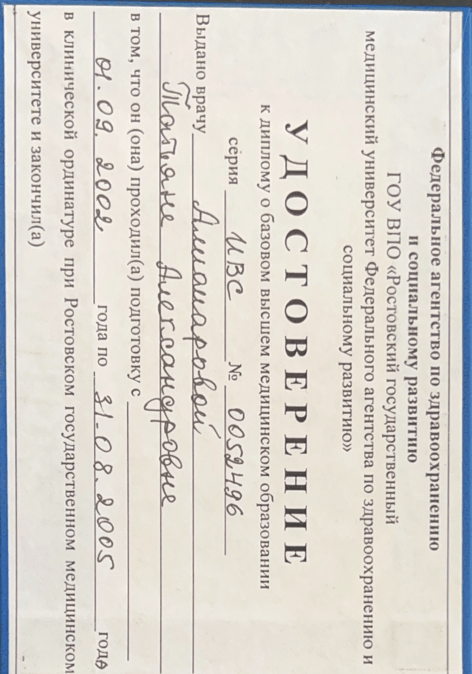 Федеральное агентство по здравоохранению
и социальному развитию
ГОУ ВПО «Ростовский государственный
медицинский университет Федерального агентства по здравоохранению и
социальному развитию»
УДОСТОВЕРЕНИЕ
к диплому о базовом высшем медицинском образовании
серия ИВС № 0052496
Выдано врачу
Татьяне Александровне
в том, что он (она) проходил(а) подготовку с
01.09.2002 года по 31.08.2005 года
в клинической ординатуре при Ростовском государственном медицинском
университете и закончил(а)